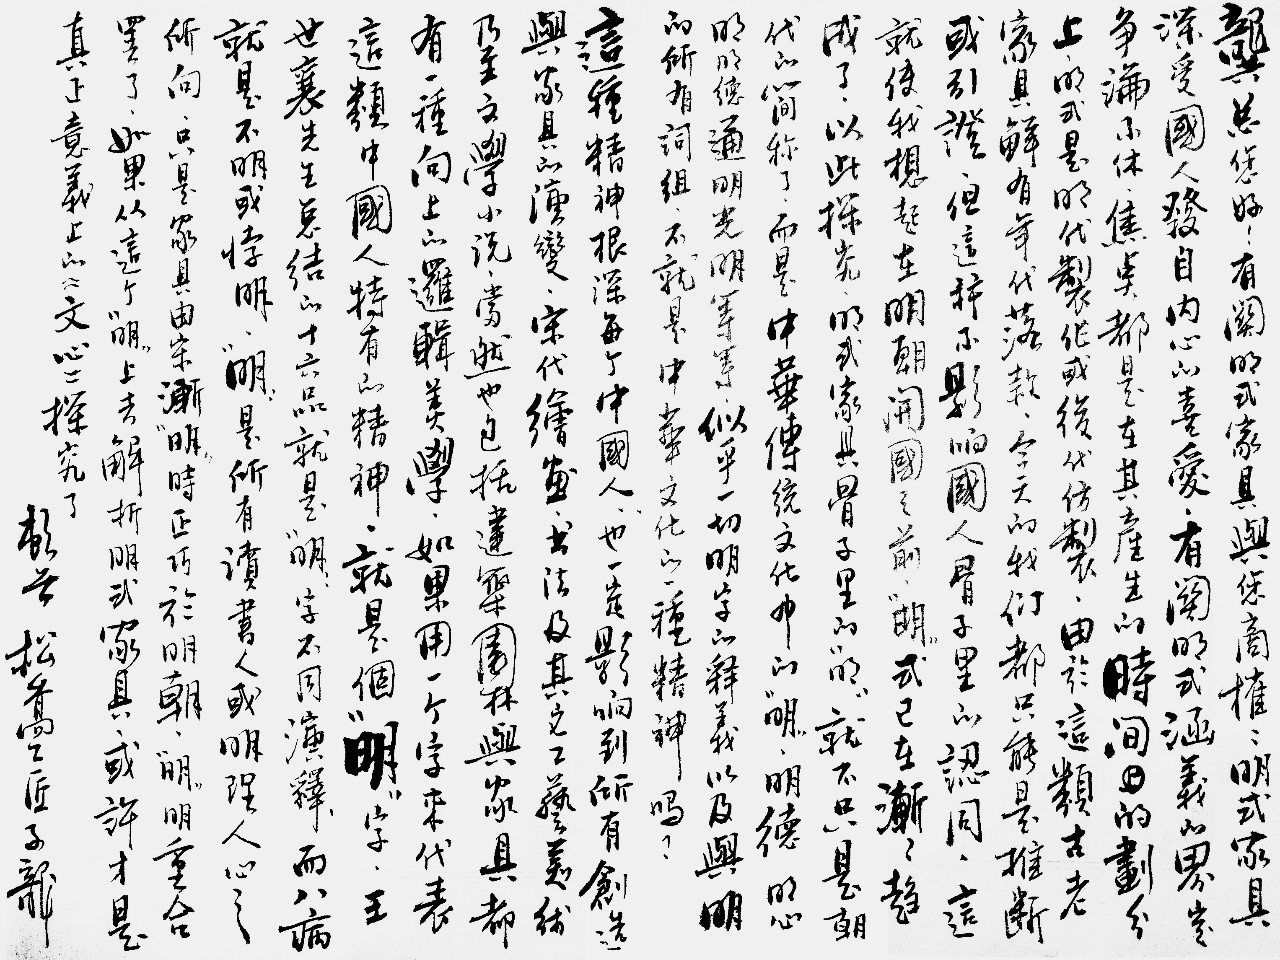 龔总您好、有関明式家具與您商榷、明式家具
深受國人發自内心的喜愛、有関明式涵義的界定
争論不休、焦点都是在其產生的時间的劃分
上、明式是明代製作或後代仿製、由於這類古老
家具鲜有年代落款、今天的我们都只能是推断
或引證、但這种不影响國人骨子里的認同、這
就使我想起在明朝開國之前、“明”式已在漸漸趋
成了、以此探究、明式家具骨子里的“明”就不只是朝
代的简称了、而是中華傳統文化中的“明”、明德 明心
明明德通明光明等等、似乎一切明字的释義以及與明
的所有詞組、不就是中華文化的一種精神吗？
這種精神根深每个中國人、也一定影响到所有創造
與家具的演變、宋代繪画、书法及其它工藝美術
乃至文學小说、當然也包括建築園林與家具都
有一種向上的邏輯美學、如果用一个字来代表
這類中國人特有的精神、就是個“明”字、王
世襄先生总结的十六品就是“明”字不同演釋、而八病
就是不明或悖明、“明”是所有讀書人或明理人心之
所向、只是家具由宋漸“明”時正巧於明朝、“明”明重合
罢了、如果从這个“明”上去解析明式家具、或许才是
真正意義上的“文心”探究了
松喬工匠子龍